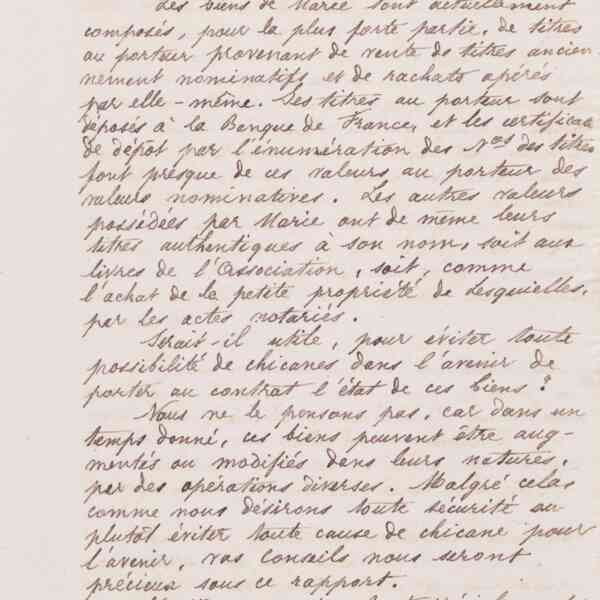 Les biens de Marie sont actuellement
composés, pour la plus forte partie, de titres
au porteur provenant de vente de titres ancien-
nement nominatifs et de rachats opérés
par elle-même. Ses titres au porteur sont
déposés à la Banque de France, et les certificats
de dépôt par l'énumération des Nos des titres
font presque de ces valeurs au porteur des
valeurs nominatives. Les autres valeurs
possédées par Marie ont de même leurs
titres authentiques à son nom, soit aux
livres de l'Association, soit, comme
l'achat de la petite propriété de Lesquielles,
par les actes notariés.
Serait-il utile, pour éviter toute
possibilité de chicanes dans l'avenir de
porter au contrat l'état de ces biens ?
Nous ne le pensons pas, car dans un
temps donné, ces biens peuvent être aug-
mentés ou modifiés dans leurs natures,
par des opérations diverses. Malgré cela
comme nous désirons toute sécurité ou
plutôt éviter toute cause de chicane pour
l'avenir, vos conseils nous seront
précieux sous ce rapport.